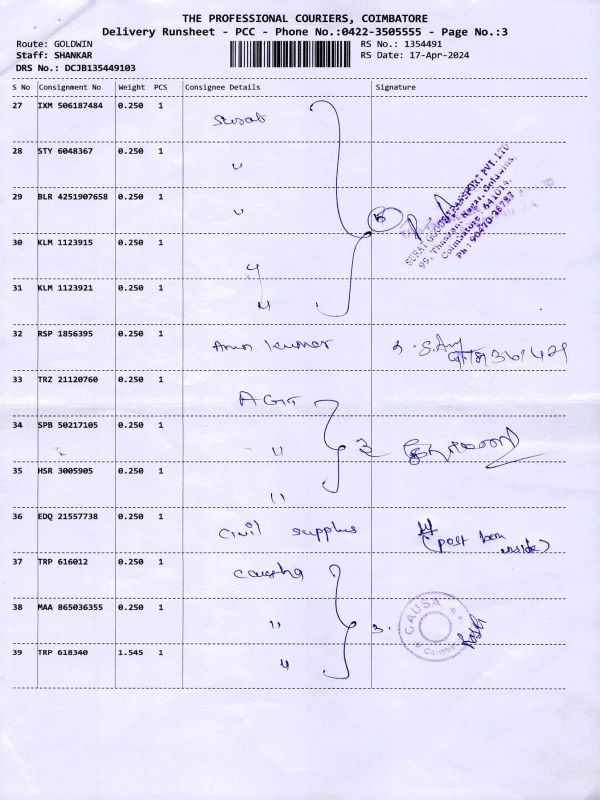 THE PROFESSIONAL COURIERS, COIMBATORE
Delivery Runsheet - PCC - Phone No.:0422-3505555 - Page No.:3
Route: GOLDWIN RS No.: 1354491
Staff: SHANKAR RS Date: 17-Apr-2024
DRS No.: DCJB135449103
S No Consignment No Weight PCS Consignee Details Signature
27 IXM 506187484 0.250 1
28 STY 6048367 0.250 1 "
29 BLR 4251907658 0.250 1 "
5
SURAT GOODS TRANSPORT PVT. LTD
99, Thottam Nagar, Goldwins,
Coimbatore - 641014.
30 KLM 1123915 0.250 1 "
31 KLM 1123921 0.250 1 "
32 RSP 1856395 0.250 1 Arun kumar
33 TRZ 21120760 0.250 1
34 SPB 50217105 0.250 1 " 3
35 HSR 3005905 0.250 1 "
36 EDQ 21557738 0.250 1 Civil supplus (post box inside)
37 TRP 616012 0.250 1 Causha
38 MAA 865036355 0.250 1 " 3. CAUSA
39 TRP 618340 1.545 1 "